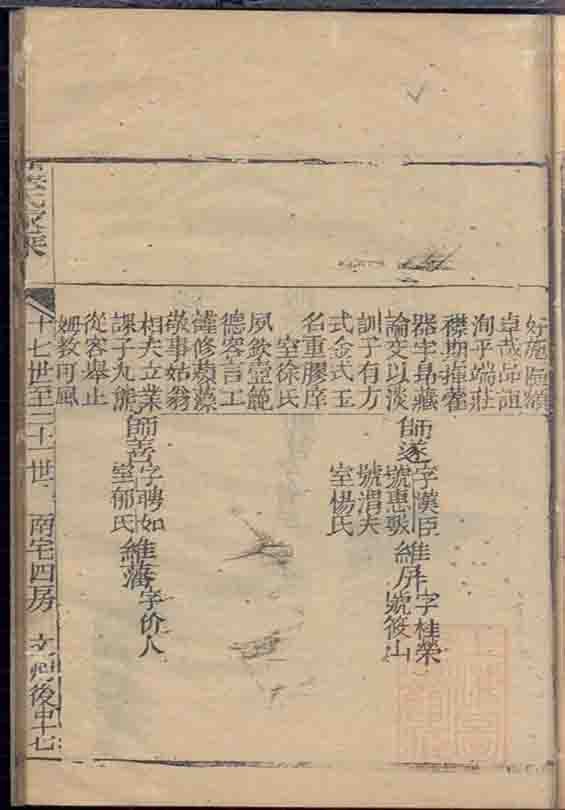 好施匾額
卓哉品誼
洵乎端莊
襟期揮霍
器宇昂藏
論交以淡
訓子有方
式金式玉
名重膠庠
室徐氏
夙欽壼範
德容言工
謹修蘋藻
敬事姑翁
相夫立業
課子丸熊
從容舉止
姆教可風
師遂
字漢臣
號惠畋
號渭夫
室楊氏
維屏
字桂榮
號筱山
師善
字聘如
室郁氏
維藩
字价人
氏家乘
十七世至二十一世
南宅四房
後申十七